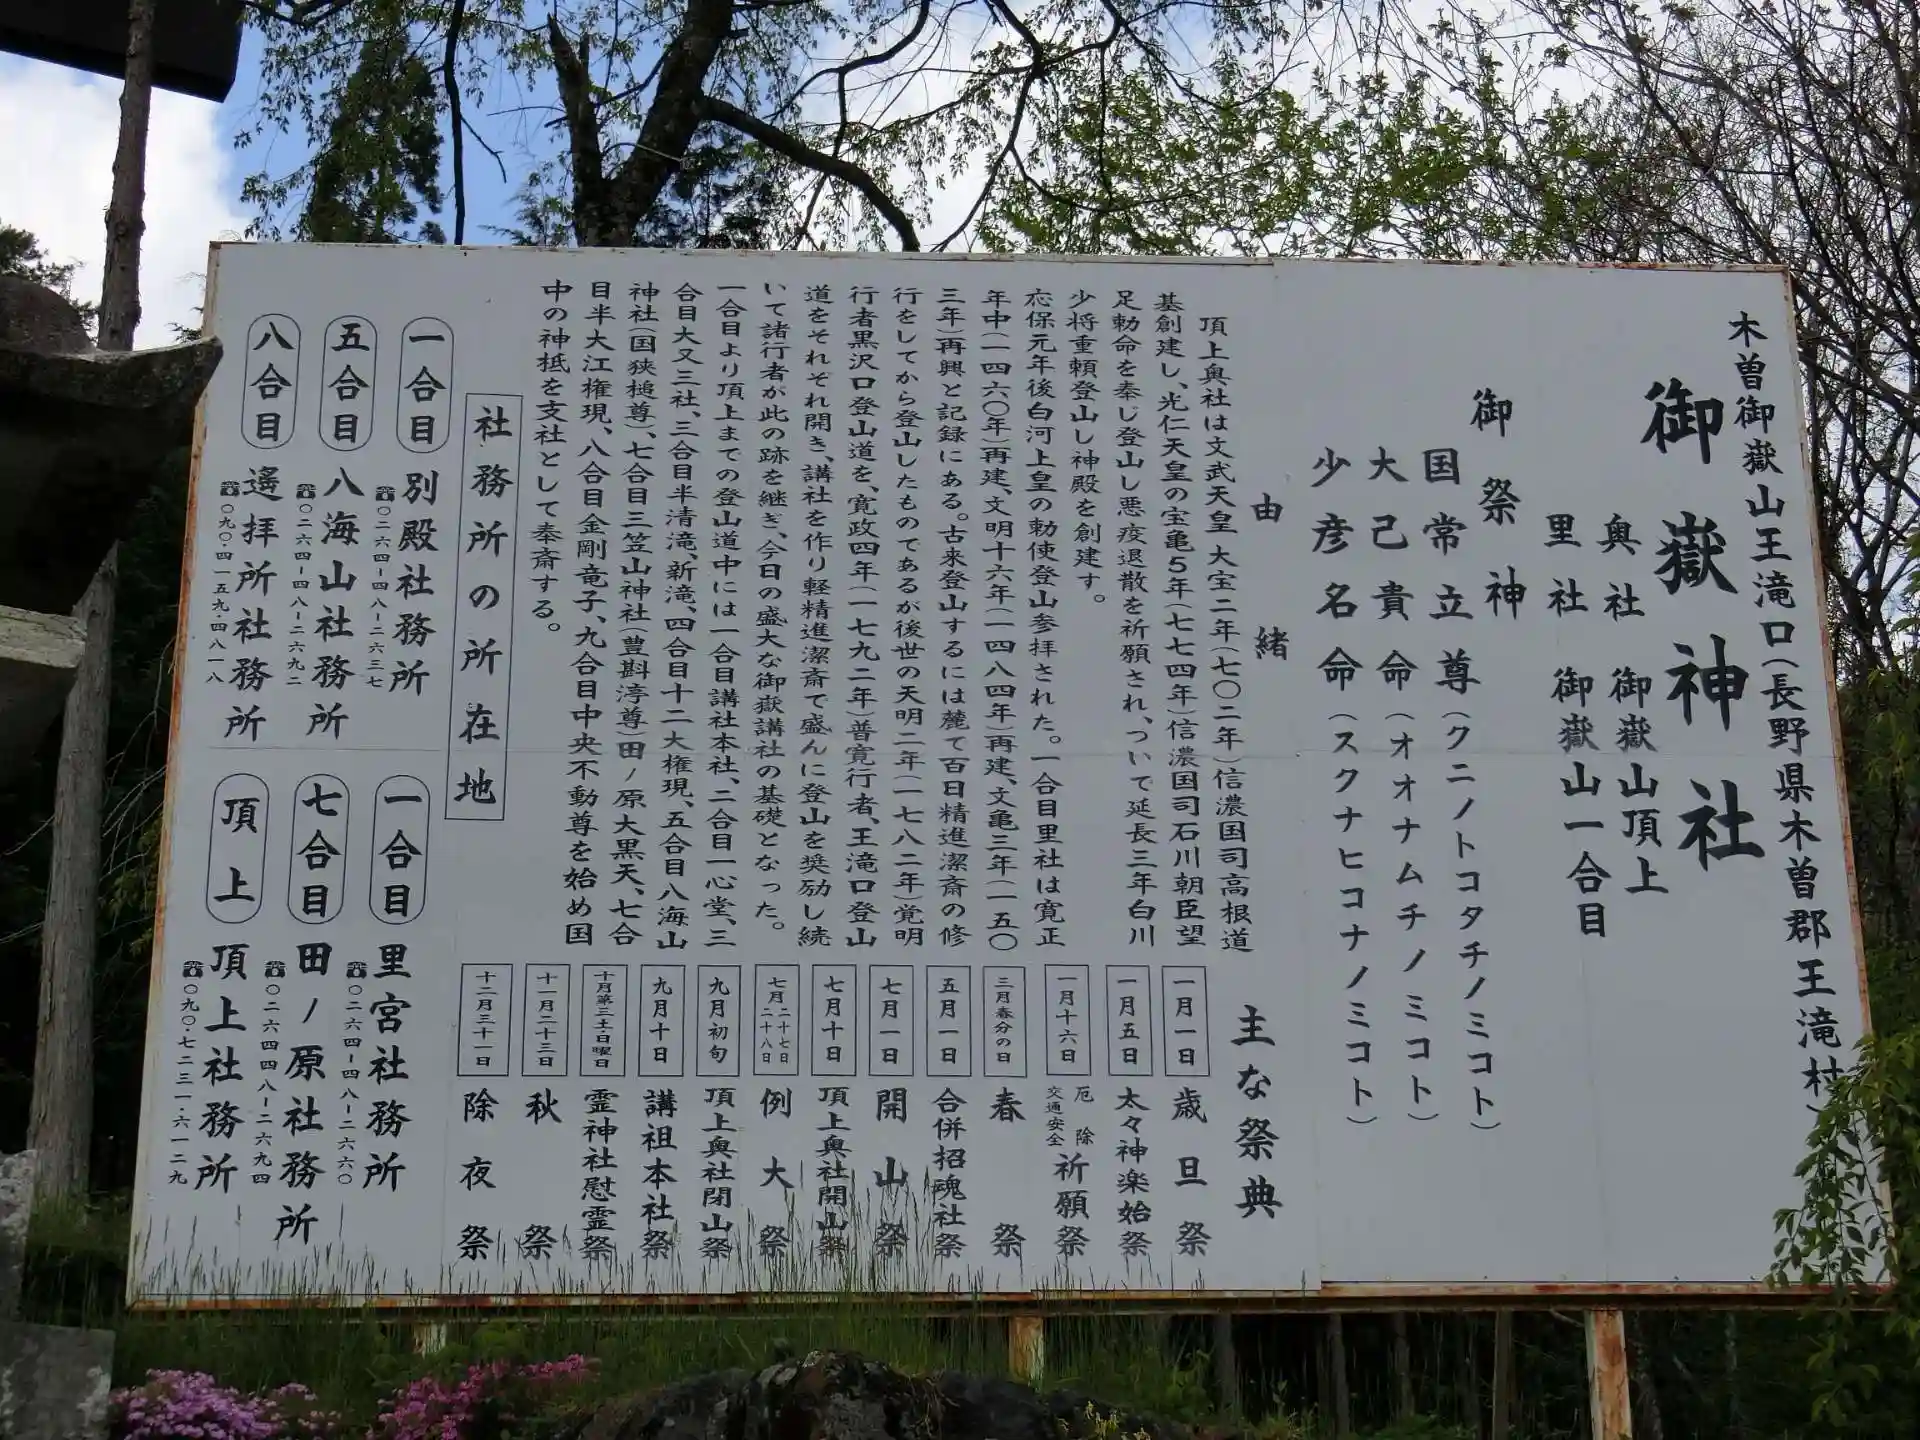 木曽御嶽山王滝口(長野県木曽郡王滝村)
御嶽神社
奥社 御嶽山頂上
里社 御嶽山一合目
御祭神
国常立尊(クニノトコタチノミコト)
大己貴命(オオナムチノミコト)
少彦名命(スクナヒコナノミコト)
由緒
頂上奥社は文武天皇 大宝二年(七〇二年)信濃国司高根道
基創建し、光仁天皇の宝亀5年(七七四年)信濃国司石川朝臣望
足勅命を奉じ登山し悪疫退散を祈願され、ついで延長三年白川
少将重頼登山し神殿を創建す。
応保元年後白河上皇の勅使登山参拝された。一合目里社は寛正
年中(一四六〇年)再建、文明十六年(一四八四年)再建、文亀三年(一五〇
三年)再興と記録にある。古来登山するには麓て百日精進潔斎の修
行をしてから登山したものであるが後世の天明二年(一七八二年)覚明
行者黒沢口登山道を、寛政四年(一七九二年)普寛行者、王滝口登山
道をそれぞれ開き、講社を作り軽精進潔斎て盛んに登山を奨励し続
いて諸行者が此の跡を継ぎ、今日の盛大な御嶽講社の基礎となった。
一合目より頂上までの登山道中には一合目講社本社、二合目一心堂、三
合目大又三社、三合目半清滝、新滝、四合目十二大権現、五合目八海山
神社(国狭槌尊)、七合目三笠山神社(豊斟渟尊)田ノ原大黒天、七合
目半大江権現、八合目金剛竜子、九合目中央不動尊を始め国
中の神祇を支社として奉斎する。
主な祭典
一月一日 歳旦祭
一月五日 太々神楽始祭
一月十六日 厄除 交通安全 祈願祭
三月春分の日 春祭
五月一日 合併招魂社祭
七月一日 開山祭
七月十日 頂上奥社開山祭
七月 二十七日 二十八日 例大祭
九月初旬 頂上奥社閉山祭
九月十日 講祖本社祭
十月第三土・日曜日 霊神社慰霊祭
十一月二十三日 秋祭
十二月三十一日 除夜祭
社務所の所在地
一合目 別殿社務所
☎〇二六四-四八-二六三七
五合目 八海山社務所
☎〇二六四-四八-二六九二
八合目 遙拝所社務所
☎〇九〇・四一五九四八一八
一合目 里宮社務所
☎〇二六四-四八-二六六〇
七合目 田ノ原社務所
☎〇二六四四八-二六九四
頂上 頂上社務所
☎〇九〇・七二三一・六一二九